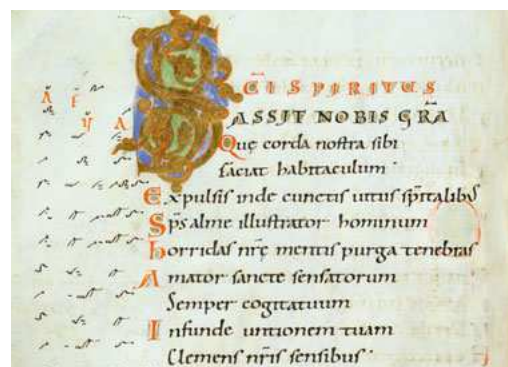 S̄CI SPIRITUS
ASSIT NOBIS GRĀ
Quę corda noſtra ſibi
faciat habitaculum·
Expulſis inde cunctis uitus ſp̄italibꝰ
Sp̄s alme illuſtrator hominum
horridas nr̄ę mentis purga tenebras
Amator ſancte ſenſatorum
Semper cogitatuum
Infunde untionem tuam
Clemens nr̄is ſenſibus·